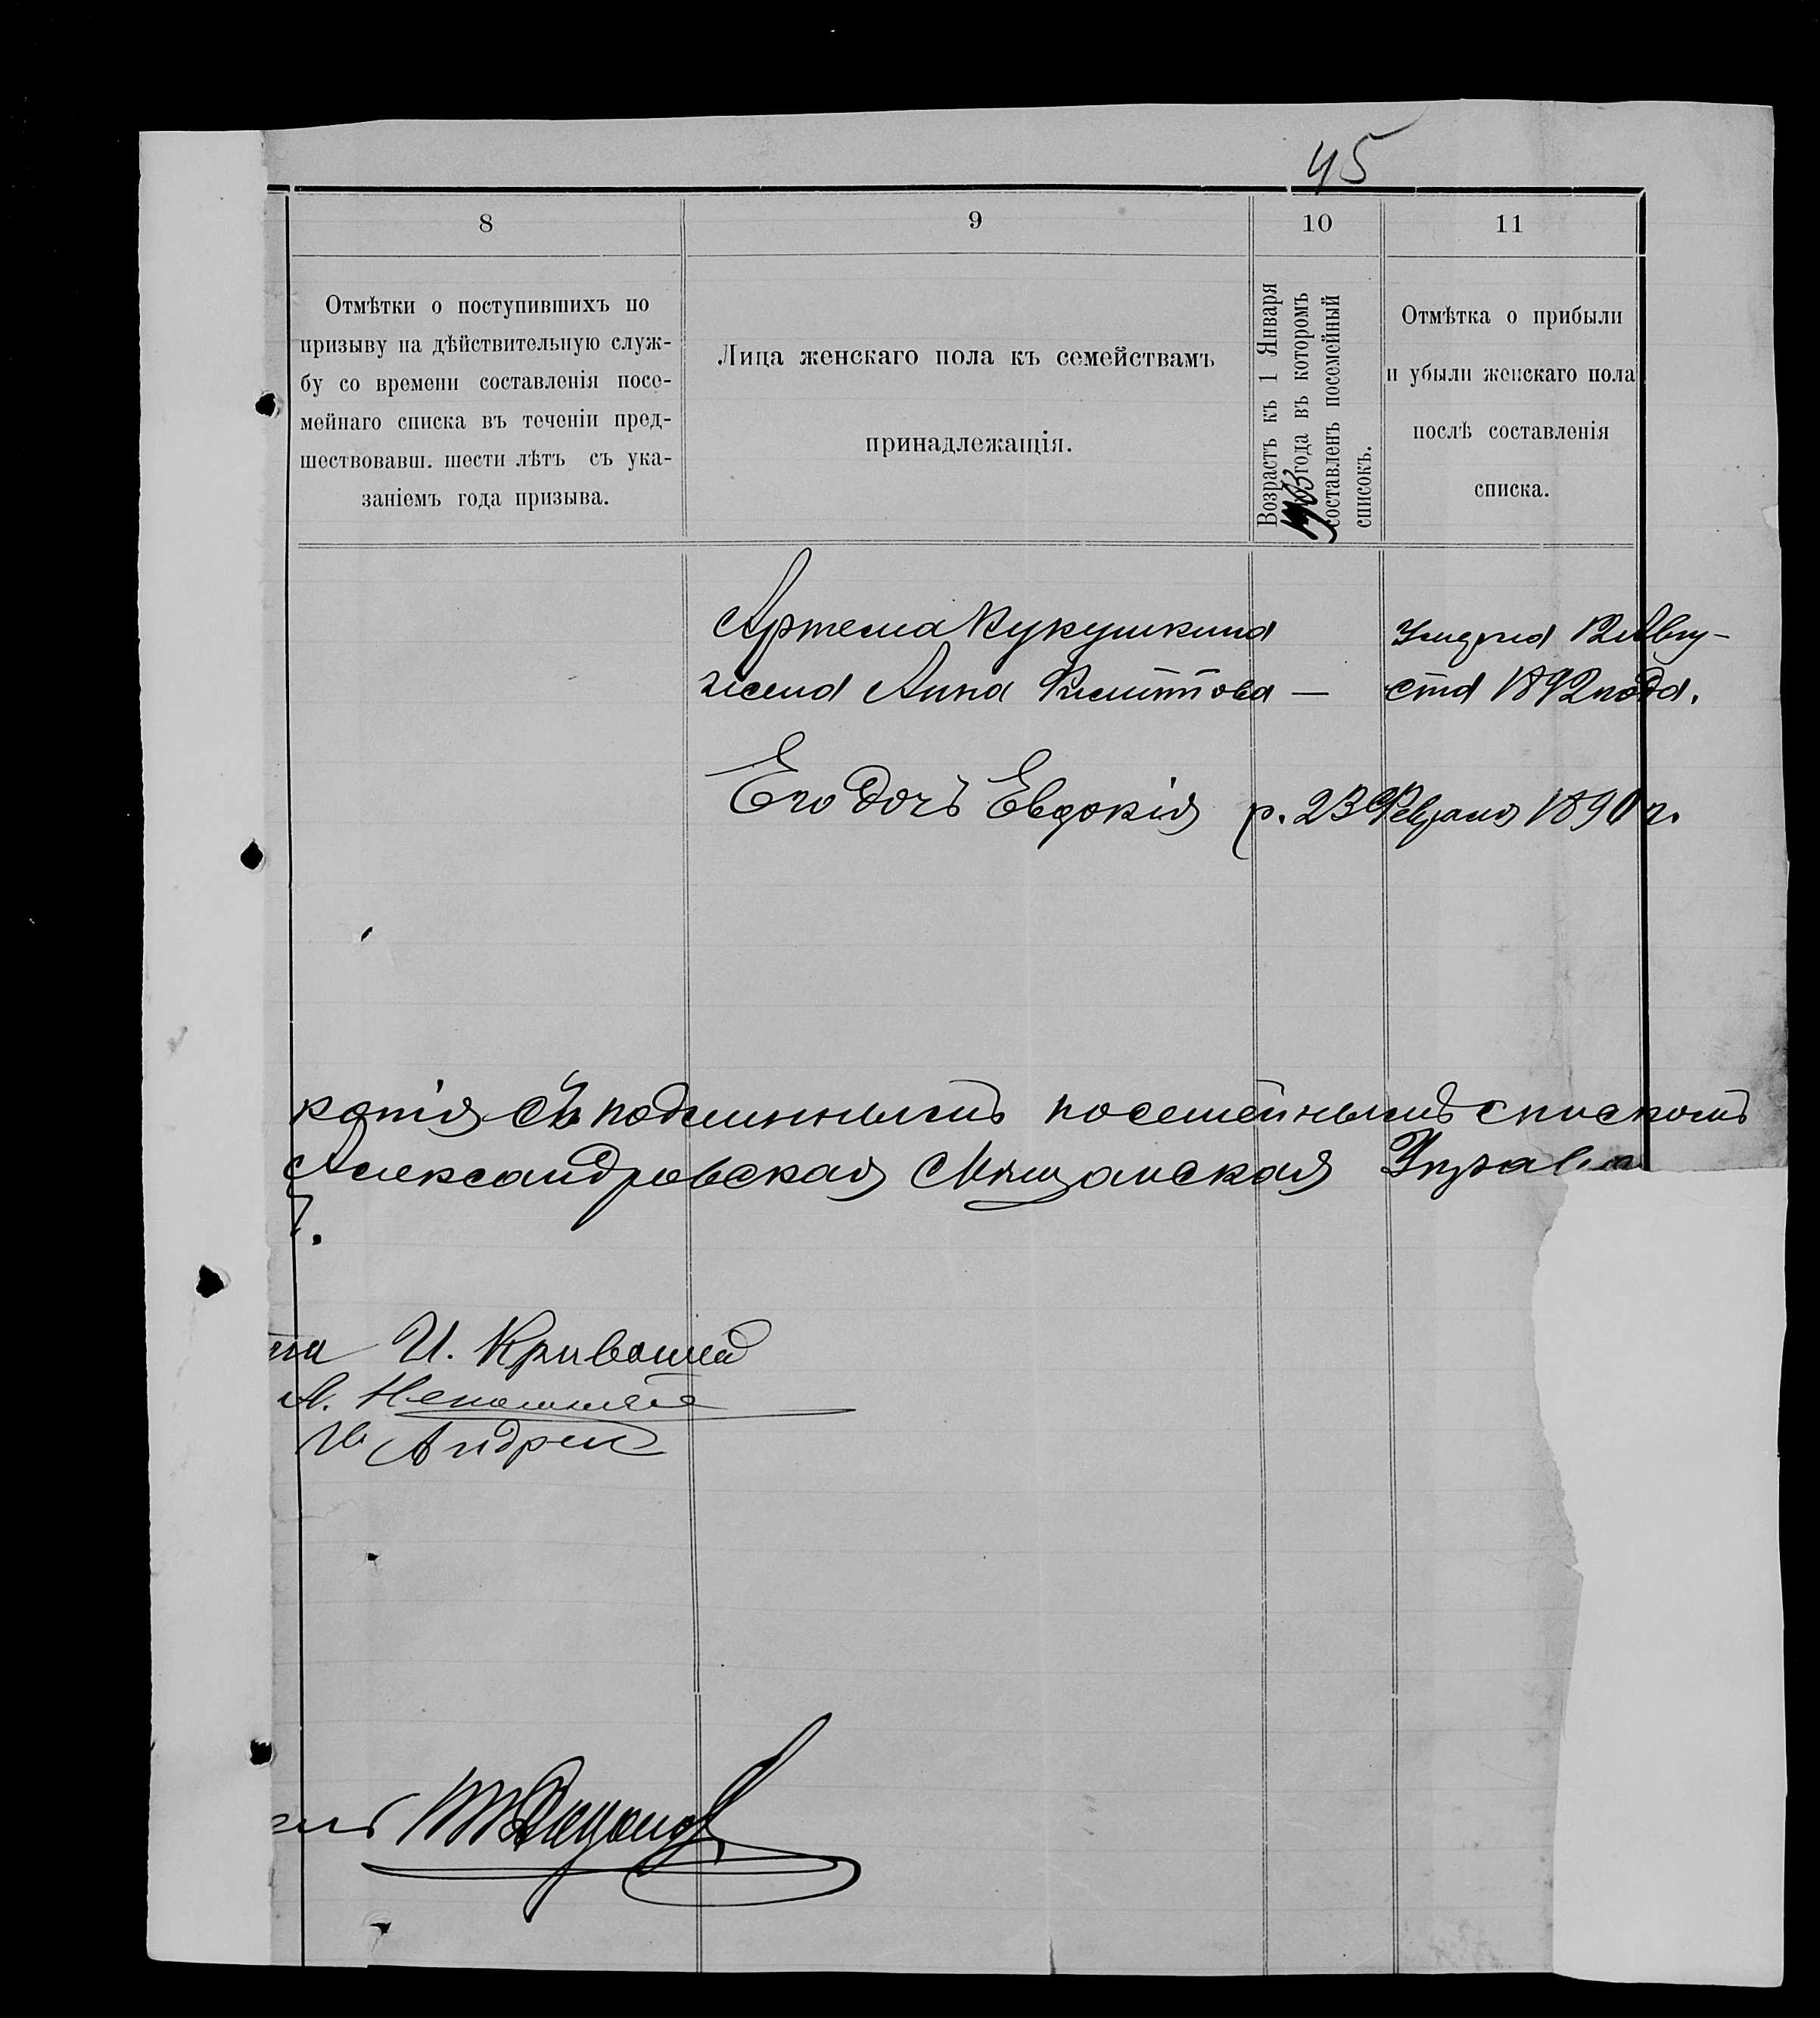 45
8
9
10
11
Отмѣтки о поступившихъ по
призыву на дѣйствительную служ-
бу со времени составленія посе-
мейнаго списка въ теченіи пред-
шествовавш. шести лѣтъ съ ука-
заніемъ года призыва.
Лица женскаго пола къ семействамъ
принадлежащія.
Возрастъ къ 1 Января
года въ которомъ
составленъ посемейный
списокъ.
Отмѣтка о прибыли
и убыли женскаго пола
послѣ составленія
списка.
Артема Кукушкина
жена Анна Филиппова —
Умерла 12 Авгу-
ста 1892 года.
Его дочь Евдокія р. 23 Февраля 1890 г.
копія съ подлиннымъ посемейнымъ спискомъ
Александровская Мѣщанская Управа
г.
та И. Кривошей
А.
И Андрей